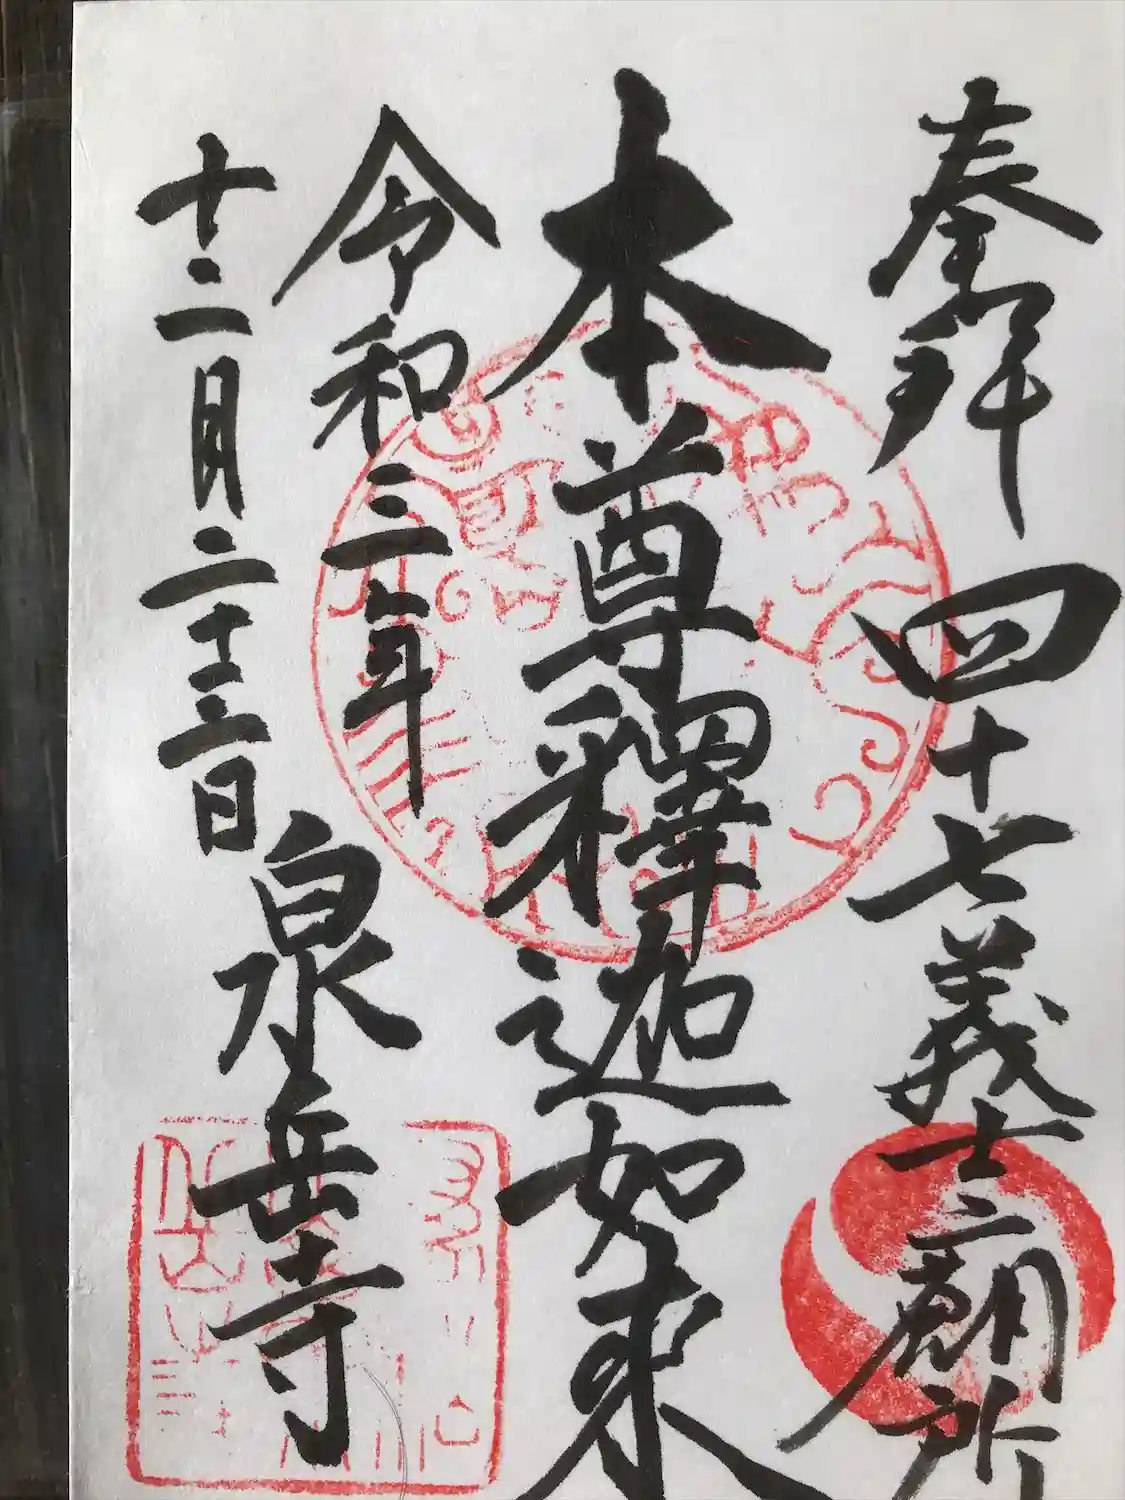 奉拜 四十七義士廟所
本尊釋迦如来
令和三年
十二月二十三日
泉岳寺